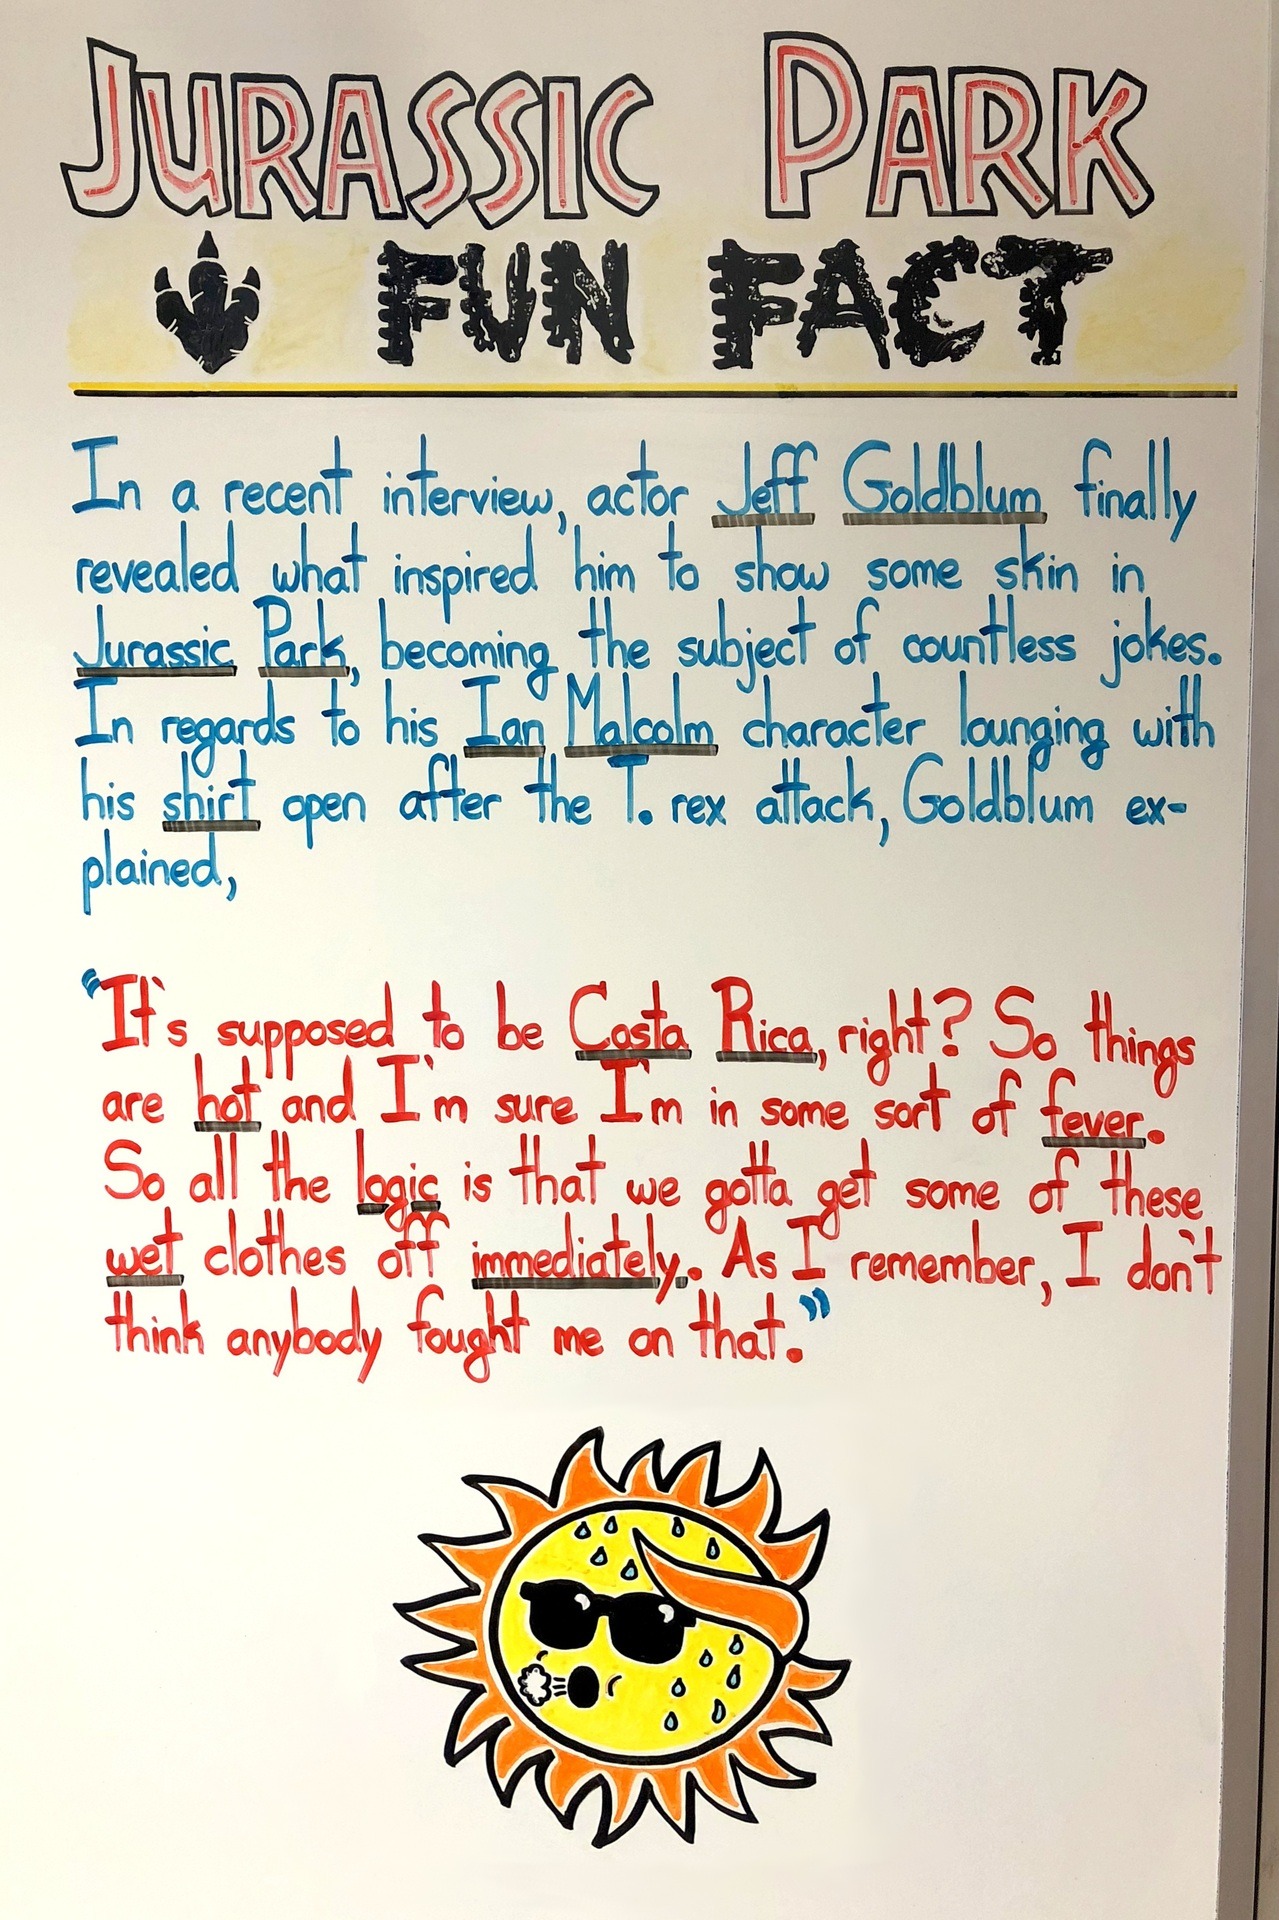 JURASSIC PARK
FUN FACT
In a recent interview, actor Jeff Goldblum finally
revealed what inspired him to show some skin in
Jurassic Park, becoming the subject of countless jokes.
In regards to his Ian Malcolm character lounging with
his shirt open after the T. rex attack, Goldblum ex-
plained,
"It's supposed to be Costa Rica, right? So things
are hot and I'm sure I'm in some sort of fever.
So all the logic is that we gotta get some of these
wet clothes off immediately. As I remember, I don't
think anybody fought me on that."